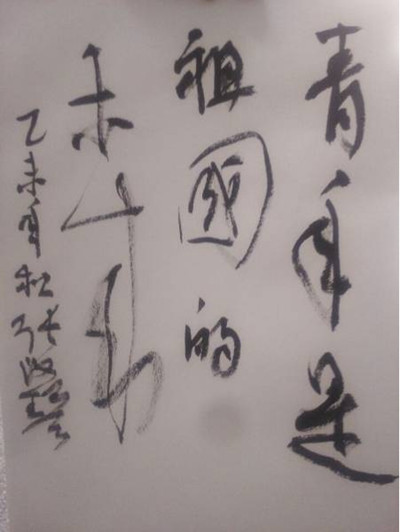 青年是
祖國的
未
乙未年秋張